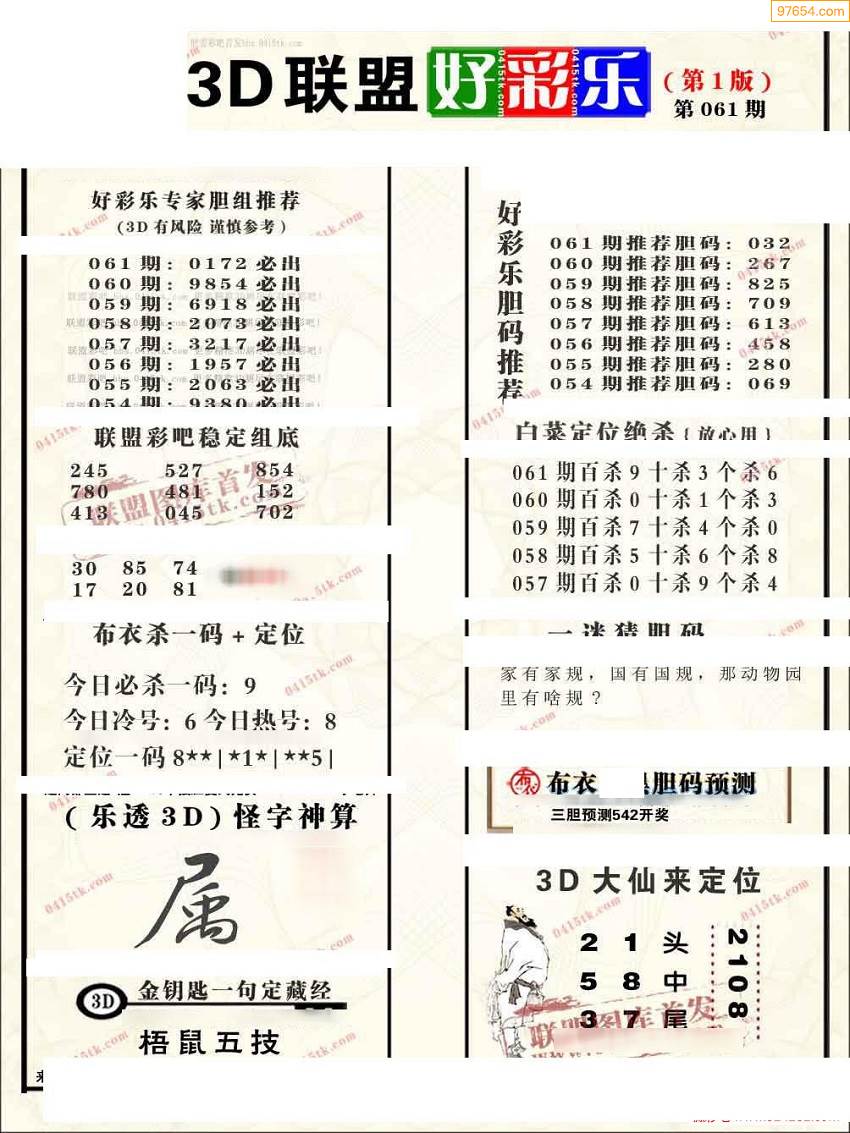 97654.com
3D联盟好彩乐
(第1版)
第061期
好彩乐专家胆组推荐
(3D有风险 谨慎参考)
061期: 0172必出
060期: 9854必出
059期: 6918必出
058期: 2073必出
057期: 3217必出
056期: 1957必出
055期: 2063必出
054期: 9380必出
联盟彩吧稳定组底
245 527 854
780 481 152
413 045 702
30 85 74
17 20 81
布衣杀一码+定位
今日必杀一码: 9
今日冷号: 6 今日热号: 8
定位一码 8**|*1*|**5|
(乐透3D)怪字神算
属
3D 金钥匙一句定藏经
梧鼠五技
好彩乐胆码推荐
061期推荐胆码: 032
060期推荐胆码: 267
059期推荐胆码: 825
058期推荐胆码: 709
057期推荐胆码: 613
056期推荐胆码: 458
055期推荐胆码: 280
054期推荐胆码: 069
白菜定位绝杀{放心用}
061期百杀9十杀3个杀6
060期百杀0十杀1个杀3
059期百杀7十杀4个杀0
058期百杀5十杀6个杀8
057期百杀0十杀9个杀4
一谜猜胆码
家有家规，国有国规，那动物园
里有啥规？
布衣 胆码预测
三胆预测542开奖
3D大仙来定位
2 1 头
5 8 中
3 7 尾
2108
联盟图库首发
0415tk.com